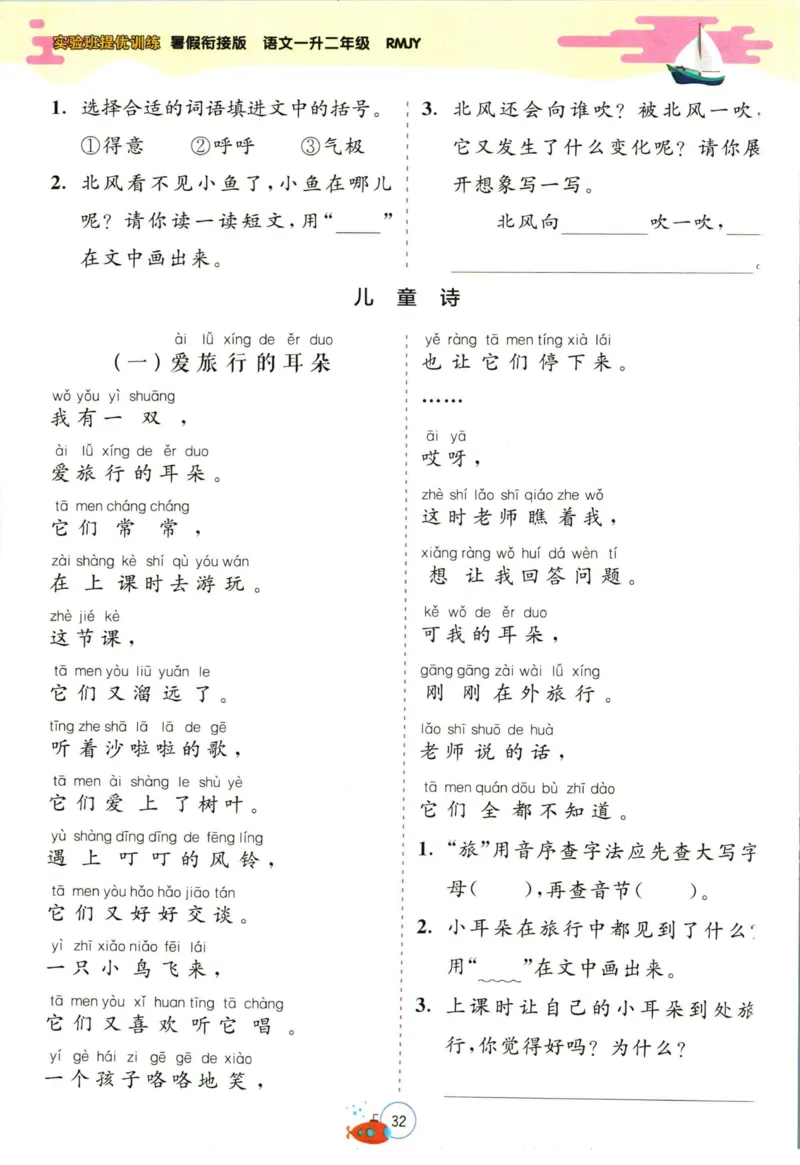 实验班提优训练 暑假衔接版 语文一升二年级 RMJY
1. 选择合适的词语填进文中的括号。
①得意 ②呼呼 ③气极
2. 北风看不见小鱼了,小鱼在哪儿
呢?请你读一读短文,用“____”
在文中画出来。
3. 北风还会向谁吹?被北风一吹,
它又发生了什么变化呢?请你展
开想象写一写。
北风向________吹一吹,___
______________________。
儿童诗
ài lǚ xíng de ěr duo
(一)爱旅行的耳朵
wǒ yǒu yì shuāng
我有一双,
ài lǚ xíng de ěr duo
爱旅行的耳朵。
tā men cháng cháng
它们常常,
zài shàng kè shí qù yóu wán
在上课时去游玩。
zhè jié kè
这节课,
tā men yòu liū yuǎn le
它们又溜远了。
tīng zhe shā lā lā de gē
听着沙啦啦的歌,
tā men ài shàng le shù yè
它们爱上了树叶。
yù shàng dīng dīng de fēng líng
遇上叮叮的风铃,
tā men yòu hǎo hǎo jiāo tán
它们又好好交谈。
yì zhī xiǎo niǎo fēi lái
一只小鸟飞来,
tā men yòu xǐ huan tīng tā chàng
它们又喜欢听它唱。
yí gè hái zi gē gē de xiào
一个孩子咯咯地笑,
yě ràng tā men tíng xià lái
也让它们停下来。
……
āi yā
哎呀,
zhè shí lǎo shī qiáo zhe wǒ
这时老师瞧着我,
xiǎng ràng wǒ huí dá wèn tí
想让我回答问题。
kě wǒ de ěr duo
可我的耳朵,
gāng gāng zài wài lǚ xíng
刚刚在外旅行。
lǎo shī shuō de huà
老师说的话,
tā men quán dōu bù zhī dào
它们全都不知道。
1. “旅”用音序查字法应先查大写字
母( ),再查音节( )。
2. 小耳朵在旅行中都见到了什么?
用“﹏﹏”在文中画出来。
3. 上课时让自己的小耳朵到处旅
行,你觉得好吗?为什么?
32